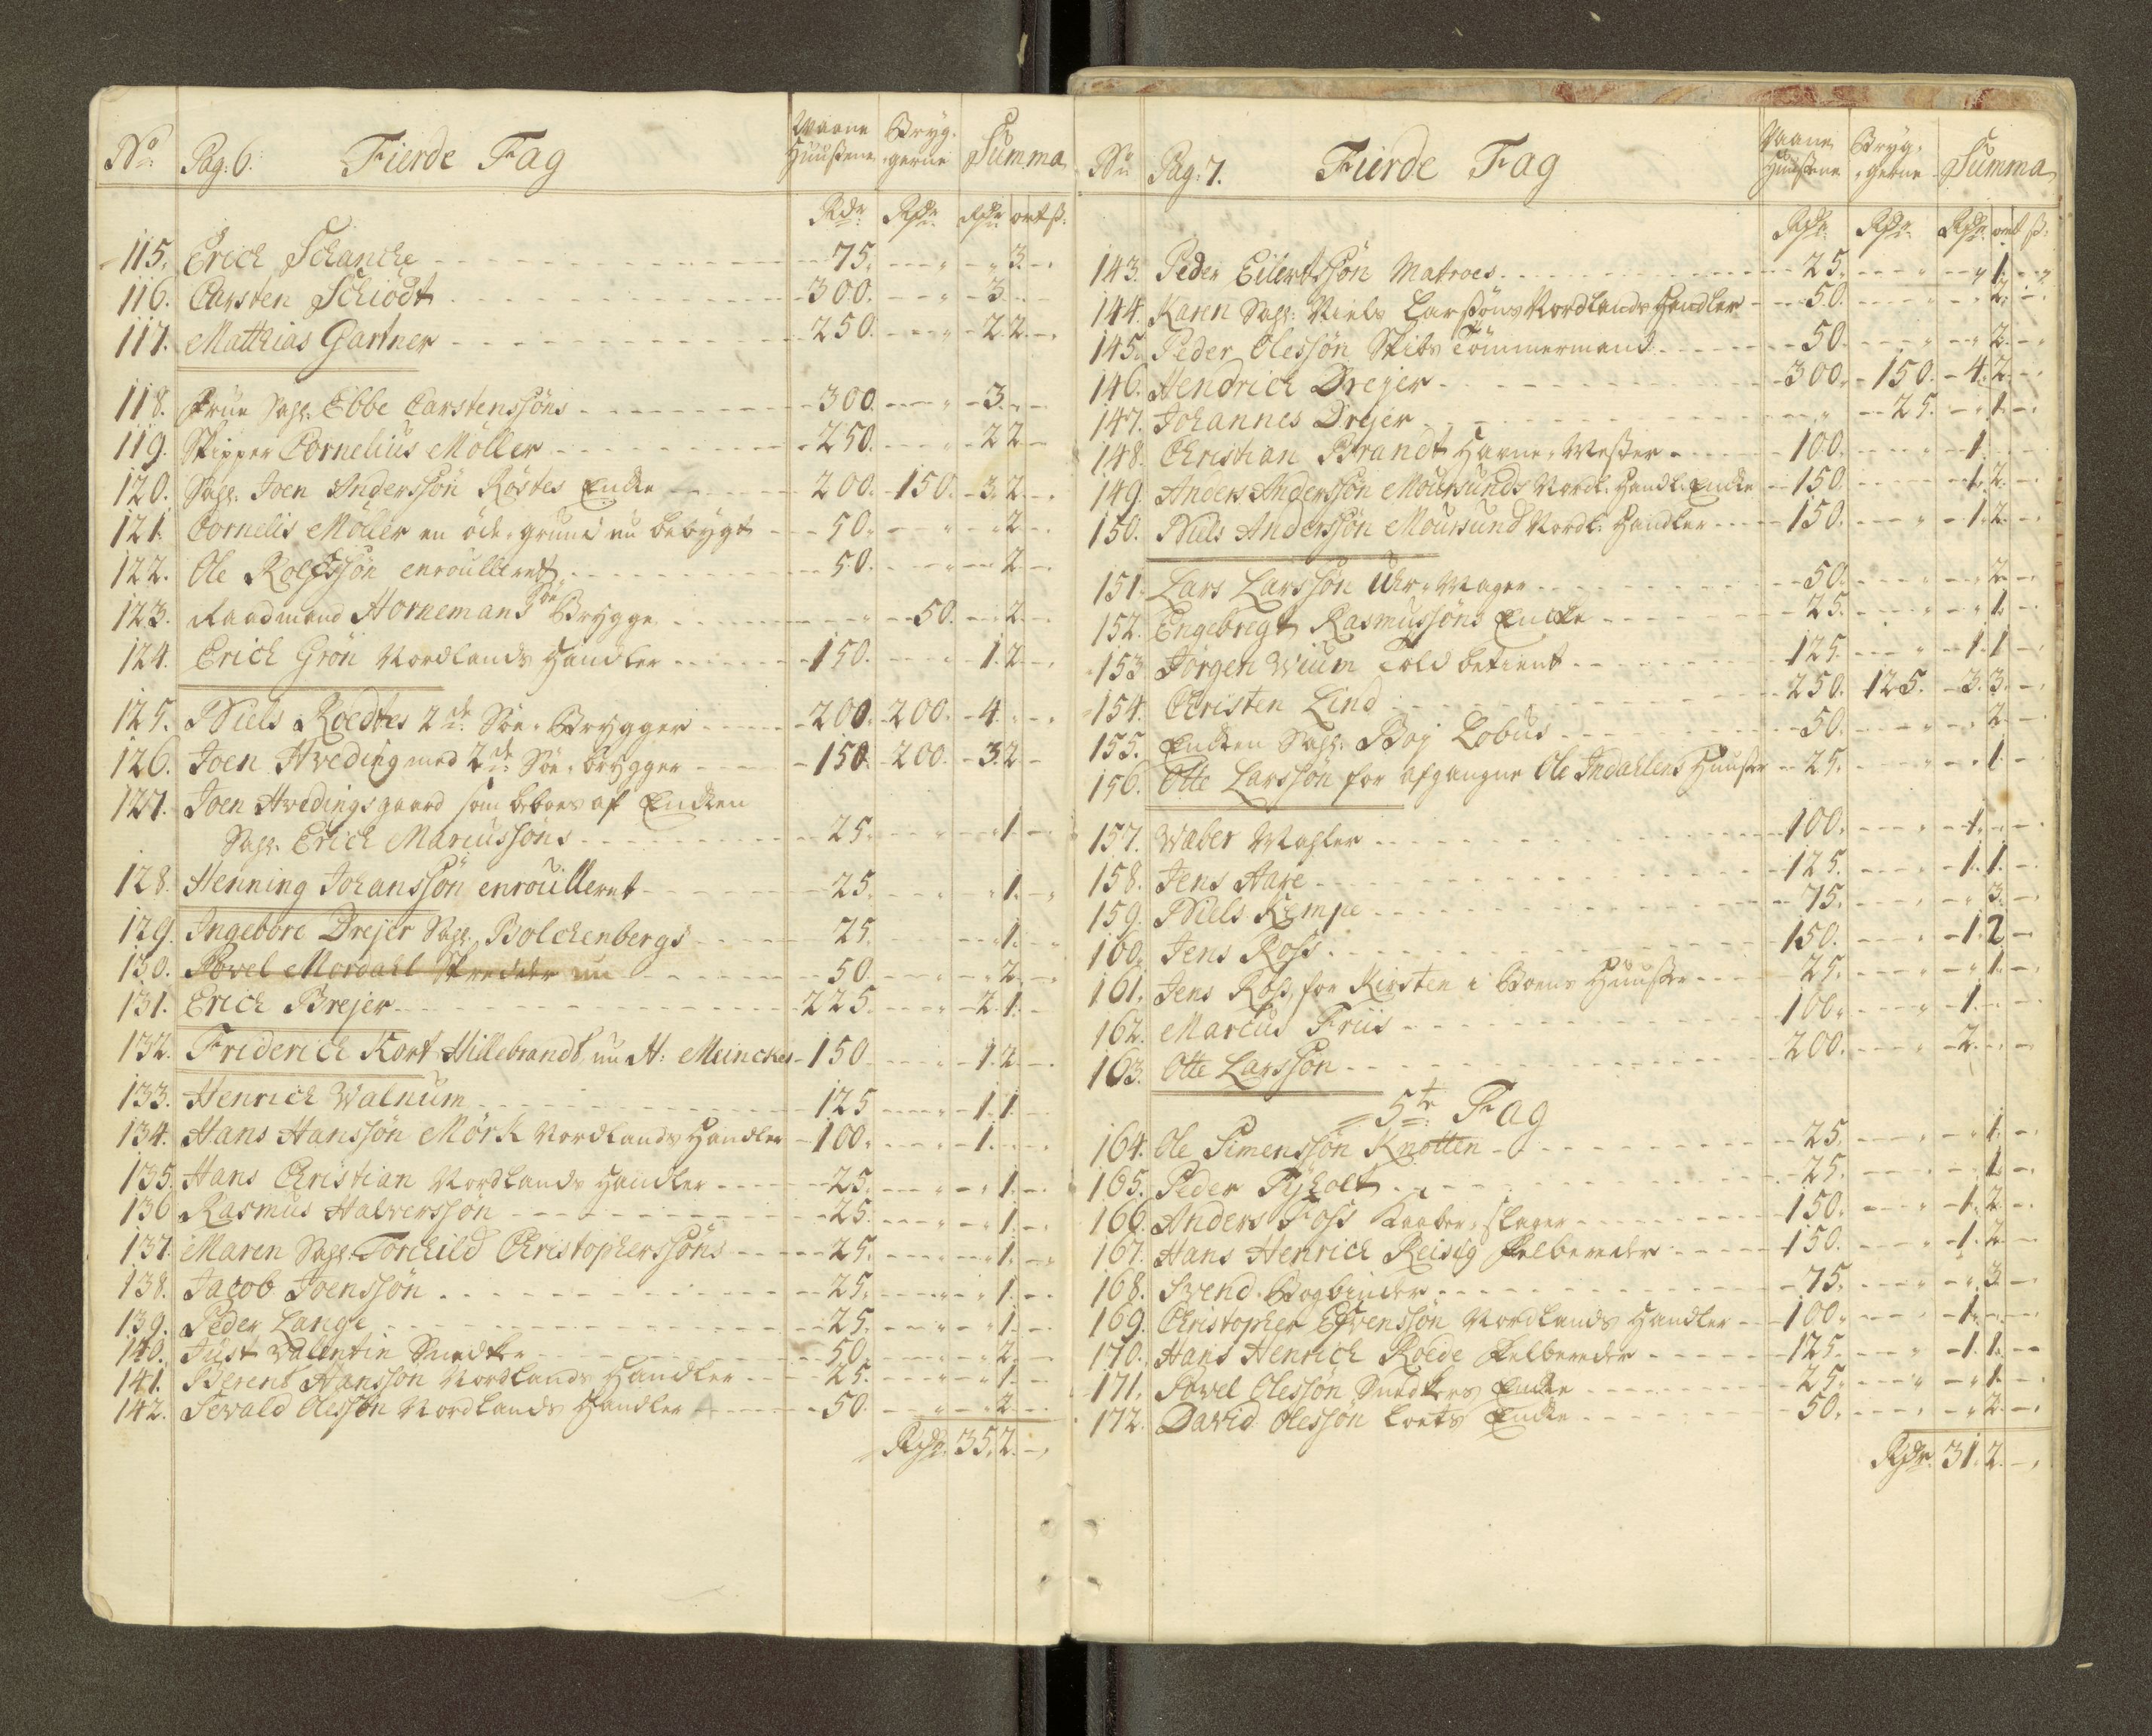 No. Pag: 6. Fierde Fag Waane Huussene Bryg- gerne Summa
Rdr. Rdr. Rdr. ort ß.
115. Erich Schancke 75. 3.
116. Carsten Schiödt 300. 3.
117. Matthias Gartner 250. 2 2.
118. Frue Sahl. Ebbe Carstenssöns 300. 3.
119. Skipper Cornelius Möller 250. 2 2
120. Sahl. Joen Anderssön Röstes Encke 200. 150. 3. 2.
121. Cornelis Möller en öde-grund nu bebygt 50. 2.
122. Ole Rolfssön enroulleret 50. 2.
123. Raadmand Hornemans Söe Brygge 50. 2.
124. Erich Grön Nordlands Handler 150. 1. 2.
125. Niels Roedtes 2de Söe-Brygger 200. 200. 4.
126. Joen Hveding med 2de Söe-brygger 150. 200. 3. 2.
127. Joen Hvedings gaard som beboes af Encken
Sahl. Erich Marcussöns 25. 1.
128. Henning Johanssön enroulleret 25. 1.
129. Ingebore Drejer Sahl. Bolckenbergs 25. 1.
130. Povel Mordahl Skredder nu 50. 2.
131. Erich Brejer 225. 2. 1.
132. Friderich Kort Hillebrandt, nu H: Meincke 150. 1. 2.
133. Henrich Walnum 125 1. 1.
134. Hans Hanssön Mörk Nordlands Handler 100. 1.
135. Hans Christian Nordlands Handler 25. 1.
136 Rasmus Halverssön 25. 1.
137. Maren Sahl. Torchild Christopherssöns 25. 1.
138. Jacob Joenssön 25. 1.
139. Peder Lange 25. 1.
140. Just Valentin Snedker 50. 2.
141. Berent Hanssön Nordlands Handler 25. 1.
142. Sevald Olessön Nordlands Handler 50. 2.
Rdr. 35. 2.
No Pag: 7. Fierde Fag Vaane Huussene Bryg- gerne Summa
Rdr. Rdr. Rdr. ort ß.
143. Peder Eilertssön Matroes 25. 1.
144. Karen Sahl: Niels Larssöns Nordlands Handler 50. 2.
145. Peder Olessön Skibs Tömmermand 50. 2.
146. Hendrich Drejer 300. 150. 4. 2.
147. Johannes Drejer 25. 1.
148. Christian Brandt Havne-Mester 100. 1.
149. Anders Anderssön Moursunds Nordl: Handl: Encke 150. 1. 2.
150. Niels Anderssön Moursund Nordl: Handler 150. 1. 2.
151. Lars Larssön Uhr-Mager 50. 2.
152. Engebregt Rasmussöns Encke 25. 1.
153. Jörgen Wium Told betient 125. 1. 1.
154. Christen Lind 250. 125. 3. 3.
155. Encken Sahl: Boy Lobus 50. 2.
156. Otte Larssön for afgangne Ole Indahlens Huuse 25. 1.
157. Waber Mahler 100. 1.
158. Jens Aare 125. 1. 1.
159. Niels Kempe 75. 3.
160. Jens Ross 150. 1. 2
161. Jens Ross, for Kirsten i Boens Huuse 25. 1.
162. Marcus Friis 100. 1.
163. Otte Larssön 200. 2.
5te Fag
164. Ole Simenssön Knotten 25. 1.
165. Peder Tyholt 25. 1.
166. Anders Foss Kaaber-slager 150. 1. 2.
167. Hans Henrich Reisig Felbereder 150. 1. 2.
168. Svend Bogbinder 75. 3.
169. Christopher Evenssön Nordlands Handler 100. 1.
170. Hans Henrich Roede Felbereder 125. 1. 1.
171. Povel Olessön Snedkers Encke 25. 1.
172. David Olessön Loets Encke 50. 2.
Rdr. 31. 2.